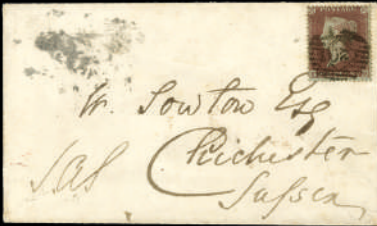 W. Sowton Esq
Chichester
Sussex